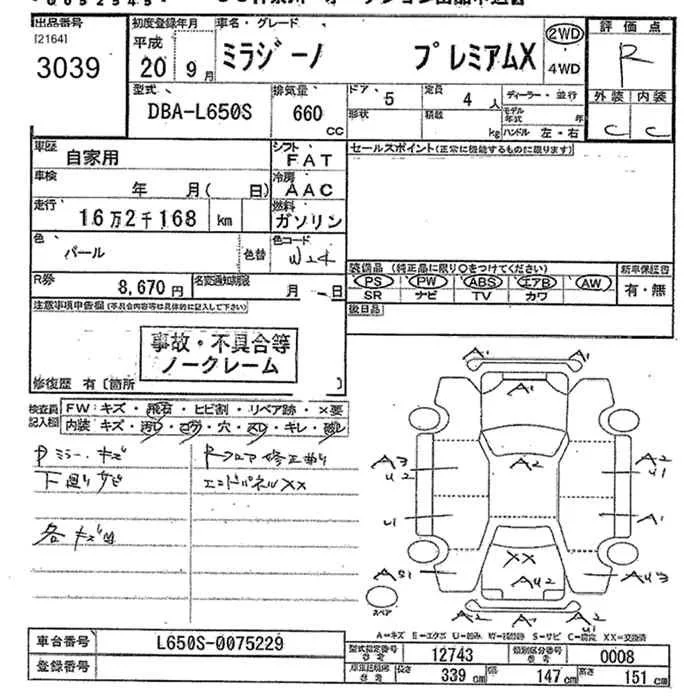 出品番号 [2164] 3039
初度登録年月 平成 20 9月
車名・グレード ミラジーノ プレミアムX
2WD
4WD
評価点 R
外装 内装
C C
型式 DBA-L650S
排気量 660 CC
ドア 5
形状
定員 4人
積載 kg
ディーラー・並行
モデル年式 年
ハンドル 左・右
車歴 自家用
シフト FAT
セールスポイント(正常に機能するものに限ります)
車検 年 月( 日)
冷房 AAC
走行 16万2千168 km
燃料 ガソリン
色 パール 色替
色コード W24
R券 8,670円
名変通知期限 月 日
装備品 (純正品に限り○をつけてください)
PS PW ABS エアB AW
SR ナビ TV カワ
新車保証書
有・無
後日品
注意事項申告欄 (不具合内容等は具体的に記入して下さい)
事故・不具合等
ノークレーム
修復歴 有〔箇所 〕
検査員記入欄
FW:キズ・飛石・ヒビ割・リペア跡・×要
内装 キズ・汚レ・コゲ・穴・スレ・キレ・破レ
Pミラーキズ
下廻りサビ
各キズ凹
Rフロア修正曲り
エンドパネルXX
A1 A1
A1
A3 U2 A2 A2 U1
U1 A1
XX
AS1 AU2 AU3
A2 A2 A2 U1
スペア
A=キズ E=エクボ U=凹み W=補修跡 S=サビ C=腐食 XX=交換済
車台番号 L650S-0075229
登録番号
型式指定番号 参考 12743
類別区分番号 参考 0008
長さ 339 cm 幅 147 cm 高さ 151 cm